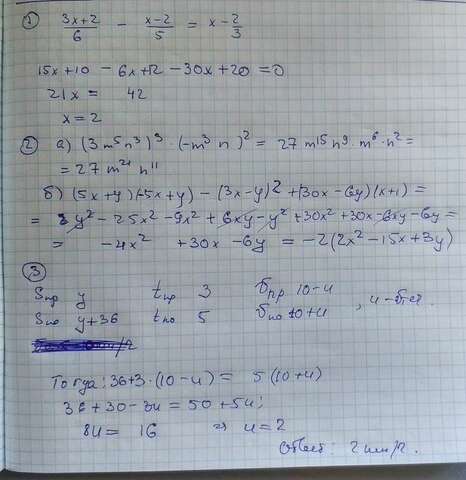 ① (3x+2)/6 - (x-2)/5 = x - 2/3
15x+10 - 6x+12 - 30x+20 = 0
21x = 42
x = 2
② а) (3m⁵n³)³ · (-m³n)² = 27m¹⁵n⁹ · m⁶ · n² =
= 27m²¹n¹¹
б) (5x+y)(-5x+y) - (3x-y)² + (30x-6y)(x+1) =
= y² - 25x² - 9x² + 6xy - y² + 30x² + 30x - 6xy - 6y =
= -4x² + 30x - 6y = -2(2x² - 15x + 3y)
③
Sпр y tпр 3 бпр 10-u
Sпо y+36 tпо 5 бпо 10+u , u -
Тогда: 36+3·(10-u) = 5(10+u)
36+30-3u = 50+5u;
8u = 16 ⇒ u = 2
Ответ: 2 км/ч.